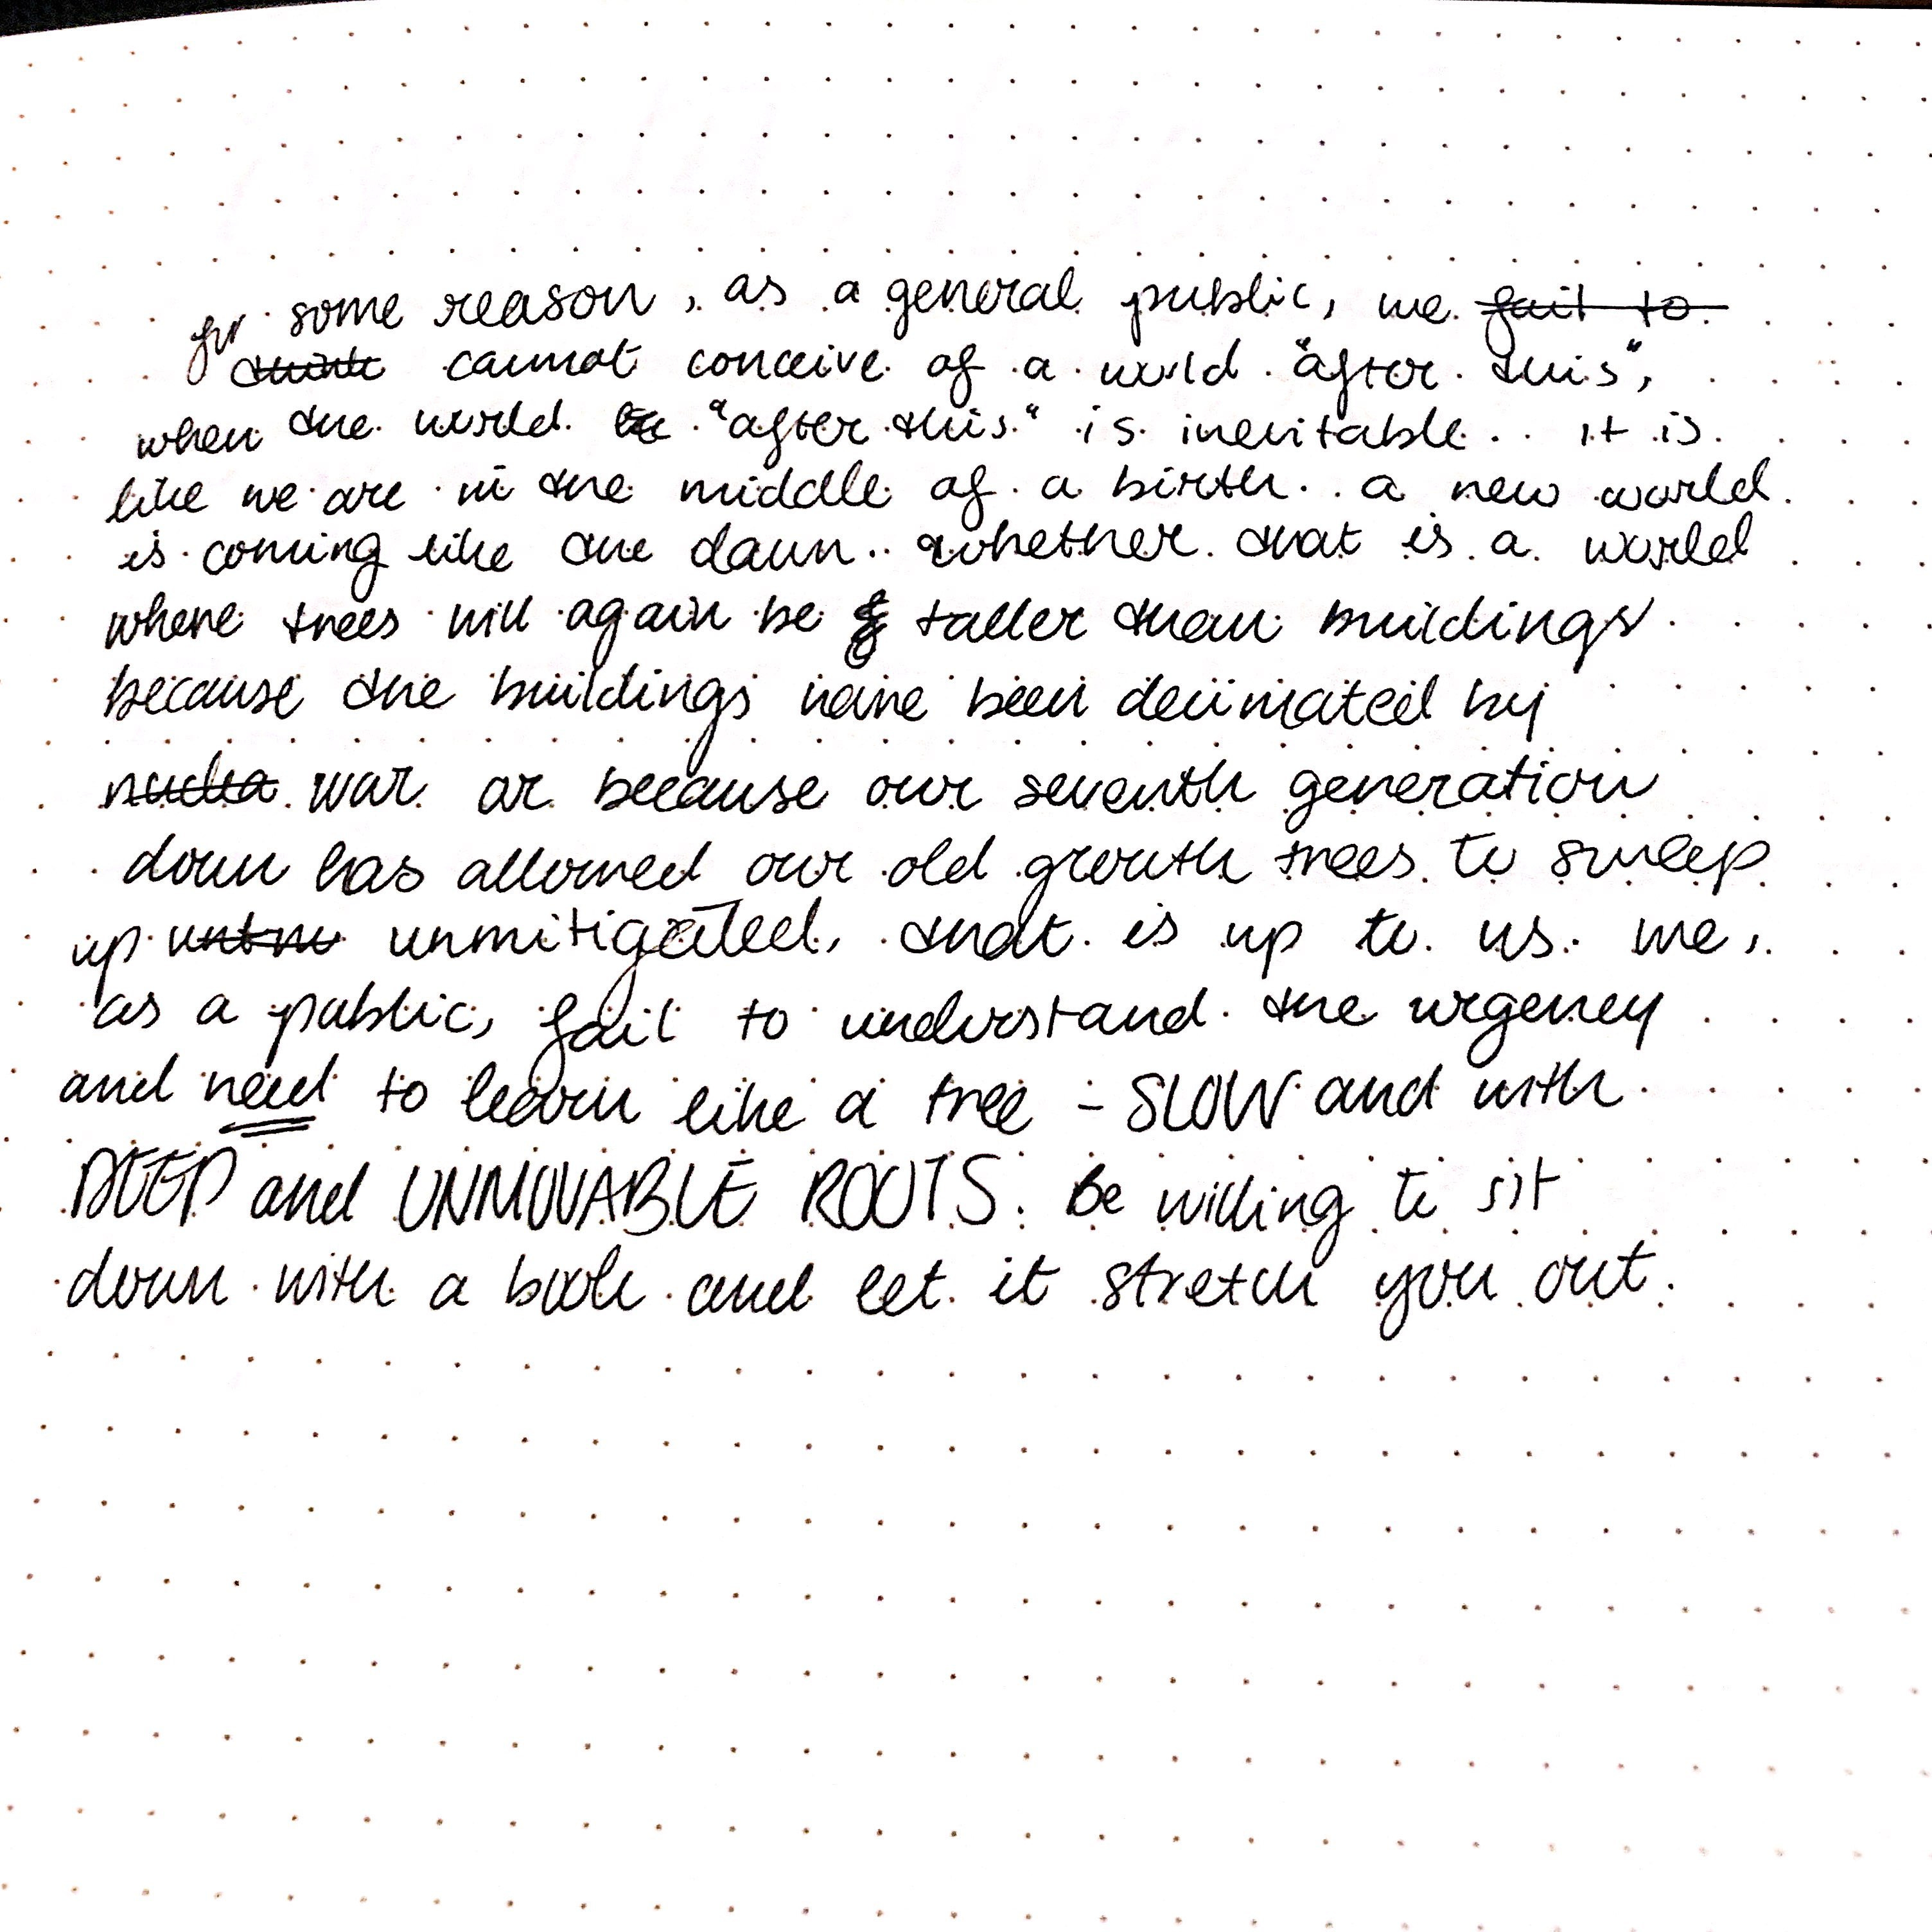 for some reason, as a general public, we ~~fail to~~
~~think~~ cannot conceive of a world "after this",
when the world "after this" is inevitable. it is
like we are in the middle of a birth. a new world
is coming like the dawn. whether that is a world
where trees will again be taller than buildings
because the buildings have been decimated by
~~nuclea~~ war or because our seventh generation
down has allowed our old growth trees to sweep
up unmitigated, that is up to us. we,
as a public, fail to understand the urgency
and need to learn like a tree - SLOW and with
DEEP and UNMOVABLE ROOTS. be willing to sit
down with a book and let it stretch you out.